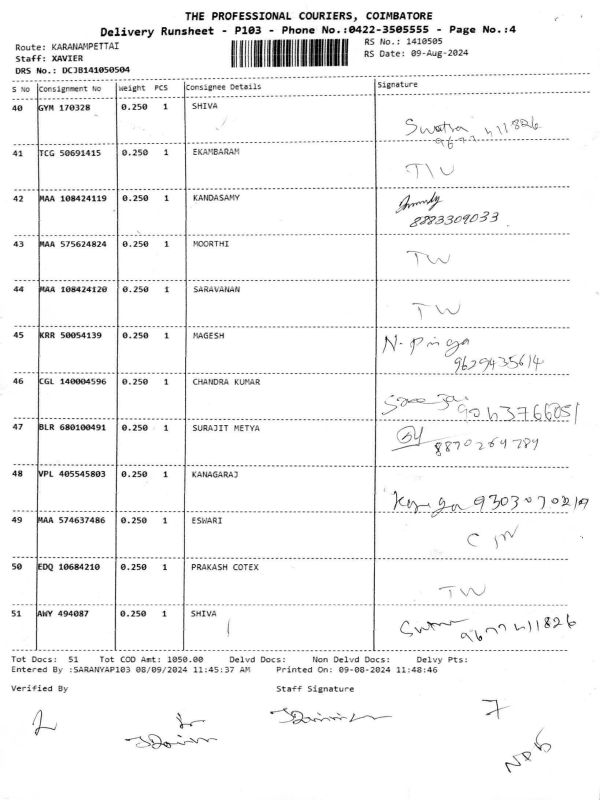 THE PROFESSIONAL COURIERS, COIMBATORE
Delivery Runsheet - P103 - Phone No.:0422-3505555 - Page No.:4
Route: KARANAMPETTAI
RS No.: 1410505
Staff: XAVIER
RS Date: 09-Aug-2024
DRS No.: DCJB141050504
S No Consignment No Weight PCS Consignee Details Signature
40 GYM 170328 0.250 1 SHIVA
41 TCG 50691415 0.250 1 EKAMBARAM
TW
42 MAA 108424119 0.250 1 KANDASAMY
8883309033
43 MAA 575624824 0.250 1 MOORTHI
TW
44 MAA 108424120 0.250 1 SARAVANAN
TW
45 KRR 50054139 0.250 1 MAGESH
9629435614
46 CGL 140004596 0.250 1 CHANDRA KUMAR
47 BLR 680100491 0.250 1 SURAJIT METYA
48 VPL 405545803 0.250 1 KANAGARAJ
49 MAA 574637486 0.250 1 ESWARI
50 EDQ 10684210 0.250 1 PRAKASH COTEX
TW
51 AWY 494087 0.250 1 SHIVA
Tot Docs: 51 Tot COD Amt: 1050.00 Delvd Docs: Non Delvd Docs: Delvy Pts:
Entered By :SARANYAP103 08/09/2024 11:45:37 AM Printed On: 09-08-2024 11:48:46
Verified By Staff Signature
7